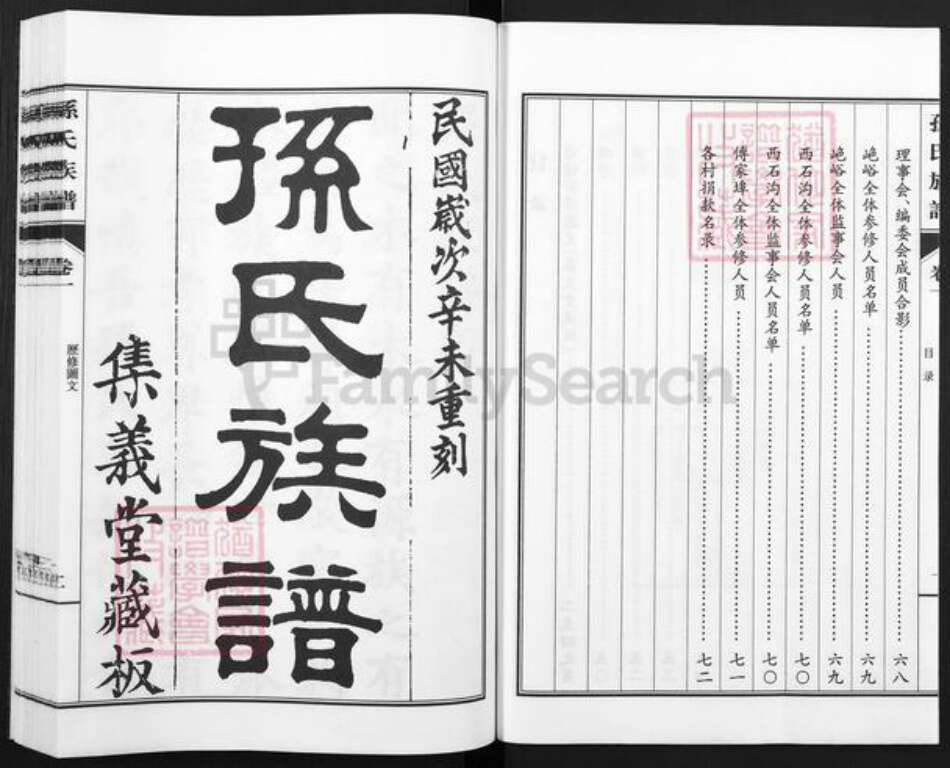 理事会、编委会成员合影……六八
屺峪全体参修人员名单……六九
屺峪全体监事会人员……六九
西石沟全体参修人员名单……七〇
西石沟全体监事会人员名单……七〇
傅家埠全体参修人员……七一
各村捐款名录……七二
目录
民國歲次辛未重刻
孫氏族譜
集義堂藏板
孫氏族譜
卷一
歷修圖文
FamilySearch